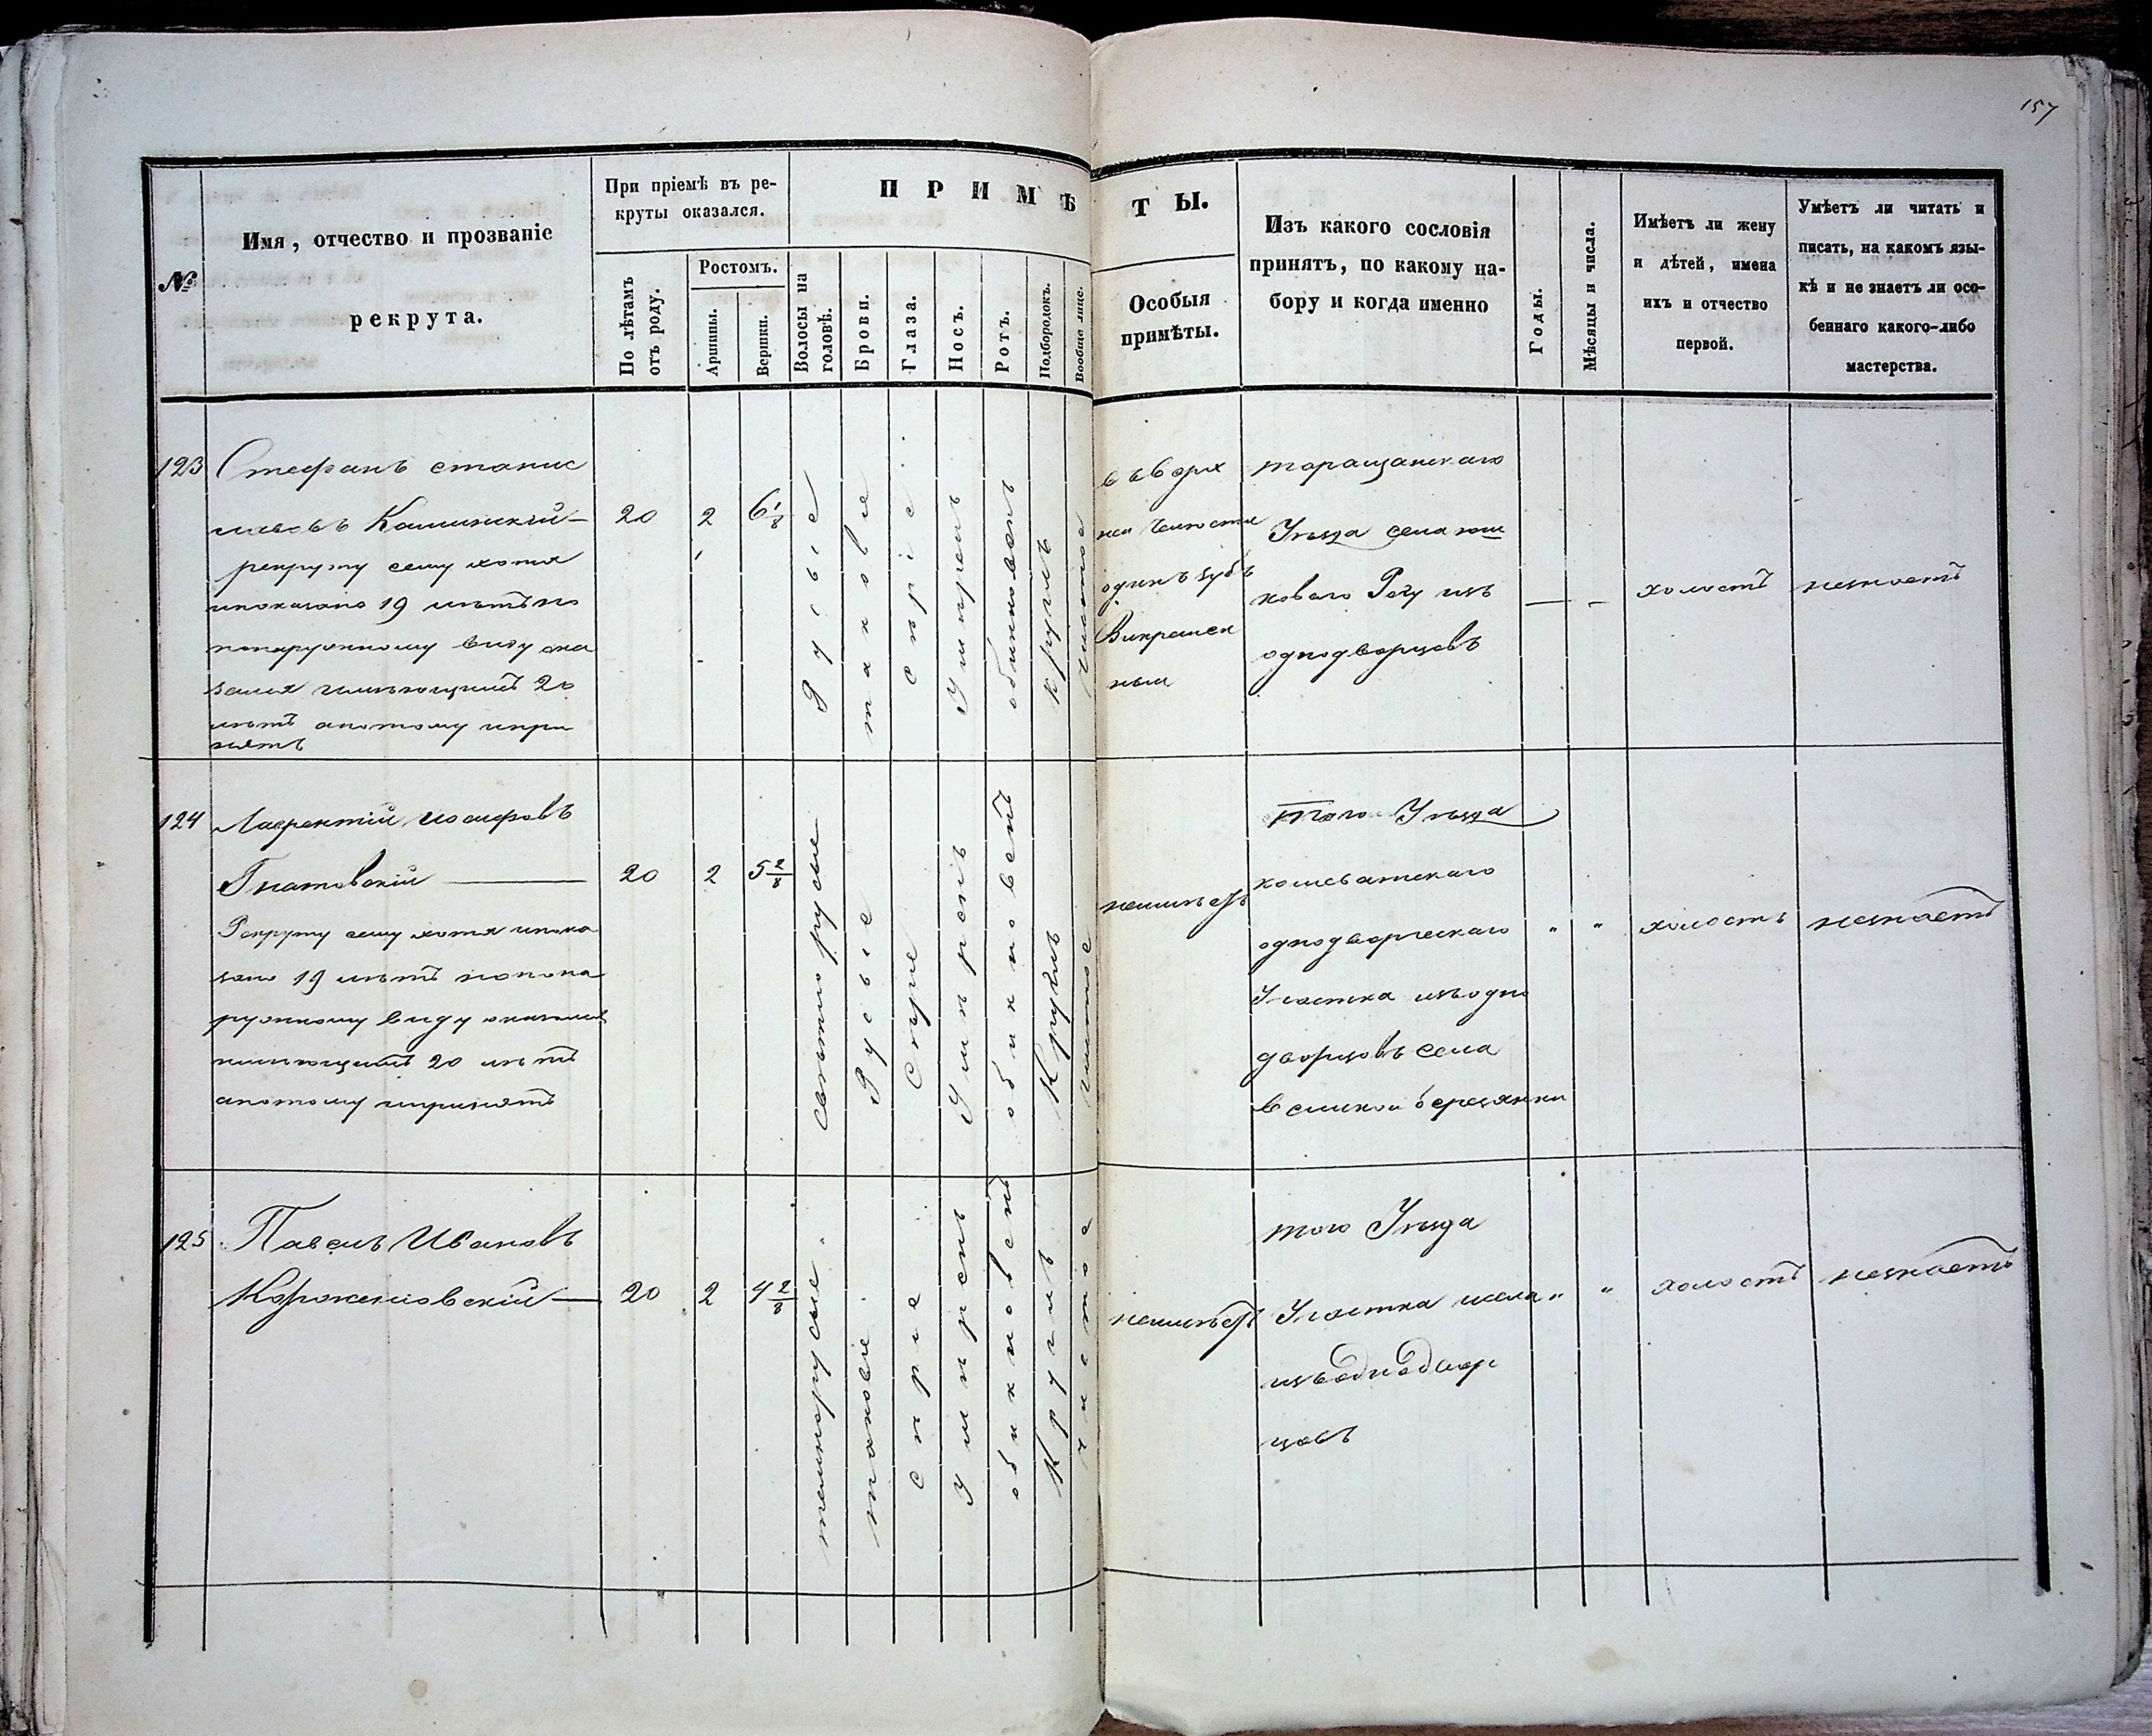 157
№
Имя, отчество и прозваніе
рекрута.
При пріемѣ въ ре-
круты оказался.
По лѣтамъ
отъ роду.
Ростомъ.
Аршины.
Вершки.
ПРИМѢ
ТЫ.
Волосы на
головѣ.
Брови.
Глаза.
Носъ.
Ротъ.
Подбородокъ.
Вообще лице.
Особыя
примѣты.
Изъ какого сословія
принятъ, по какому на-
бору и когда именно
Годы.
Мѣсяцы и числа.
Имѣетъ ли жену
и дѣтей, имена
ихъ и отчество
первой.
Умѣетъ ли читать и
писать, на какомъ язы-
кѣ и не знаетъ ли осо-
беннаго какого-либо
мастерства.
123
Стефанъ станис
лавовъ Каминскій
рекруту сему хотя
ипоказано 19 лѣтъ но
понаружному виду ока
зался имѣющимъ 20
лѣтъ апотому ипри
нятъ
20
2
6 1/8
Русые
таковые
Сѣріе
Умѣренъ
обикновенъ
круглъ
чистое
въ верх
ней челюсти
одинъ зубъ
Викрошен
ный
таращанскаго
Уѣзда села
коваго Рогу изъ
однодворцовъ
—
—
холостъ
незнаетъ
124
Лаврентій иосифовъ
Гнатовскій
Рекруту сему хотя ипока
зано 19 лѣтъ нопона
ружному виду оказался
имѣющимъ 20 лѣтъ
апотому ипринятъ
20
2
5 2/8
светло русые
Русые
Сѣрые
Умѣренъ
обикновенъ
Круглъ
чистое
неимѣетъ
того Уѣзда
кошеватскаго
однодворческаго
Участка изъодно
дворцовъ села
великой березянки
"
"
холостъ
незнаетъ
125
Павелъ Ивановъ
Корженіовскій
20
2
4 2/8
темнорусые
таковіе
Сѣріе
Умѣренъ
обикновенъ
Круглъ
Чистое
неимѣетъ
того Уѣзда
Участка исела
изъоднодвор
цовъ
"
"
холостъ
незнаетъ